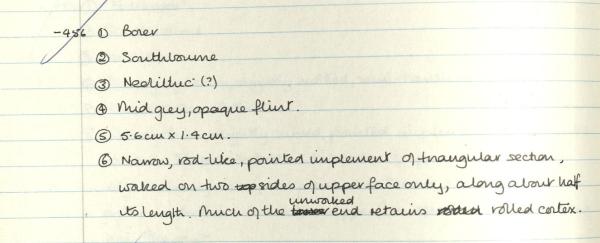 -456 ① Borer
② Southbourne
③ Neolithic (?)
④ Mid grey, opaque flint.
⑤ 5.6cm x 1.4cm.
⑥ Narrow, rod-like, pointed implement of triangular section,
worked on two sides of upper face only, along about half
its length. Much of the unworked end retains rolled cortex.